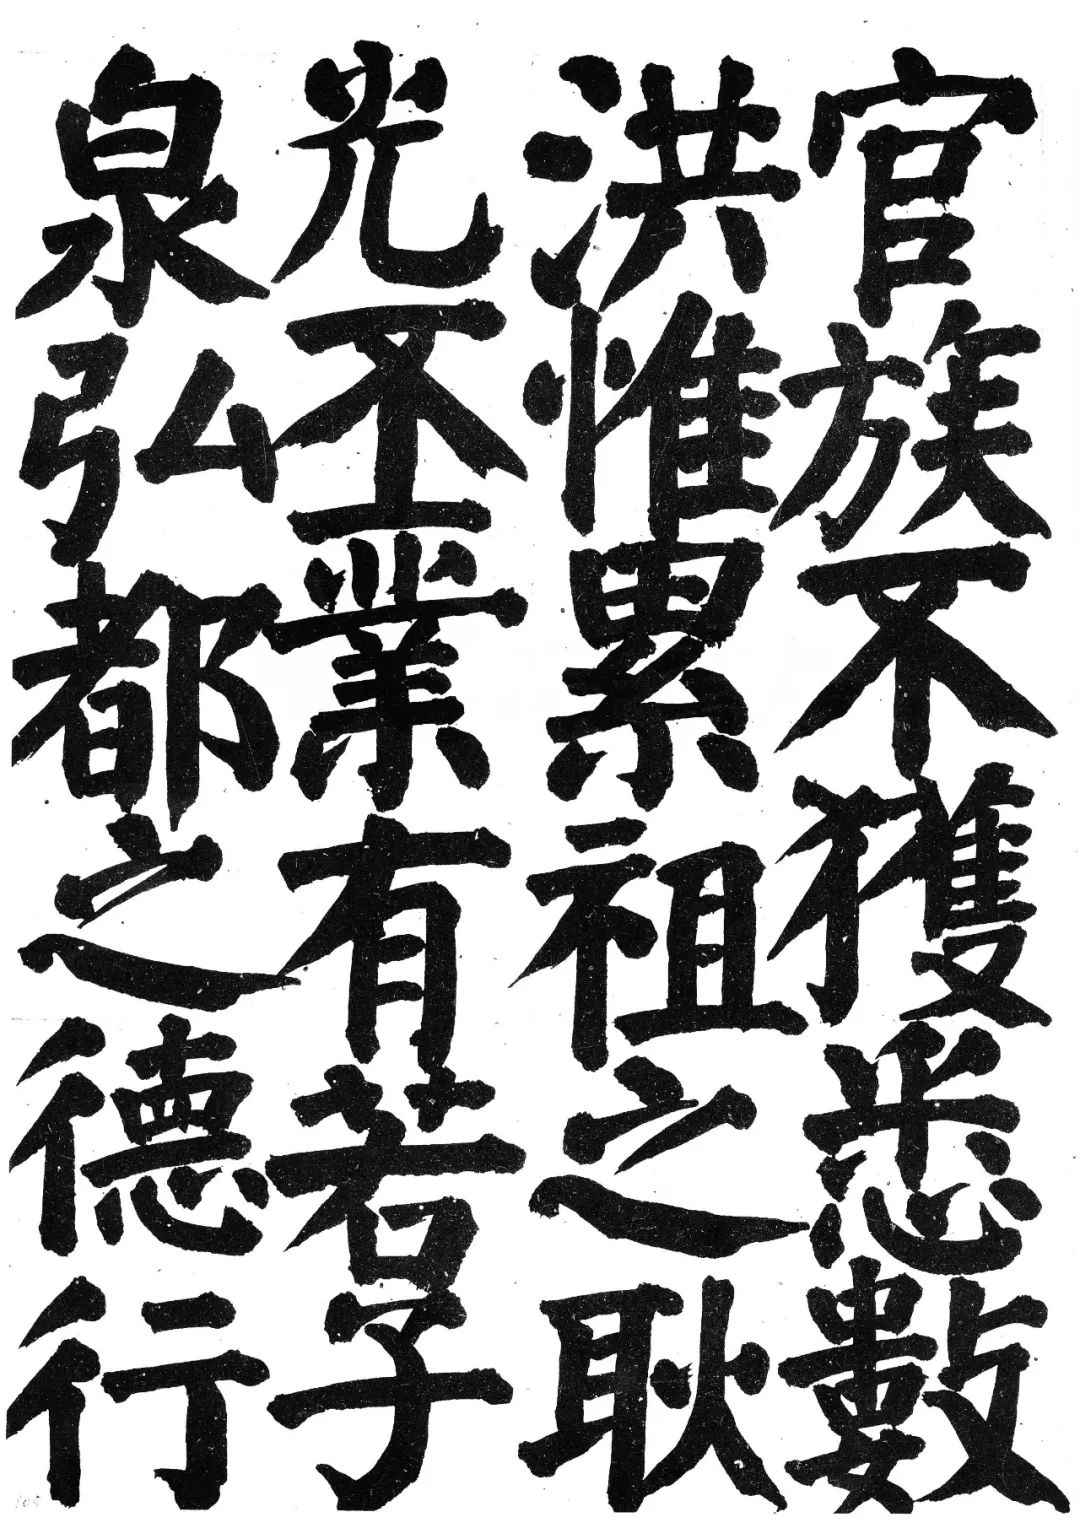 官族不獲悉數
洪惟累祖之耿
光丕業有若子
泉弘都之德行